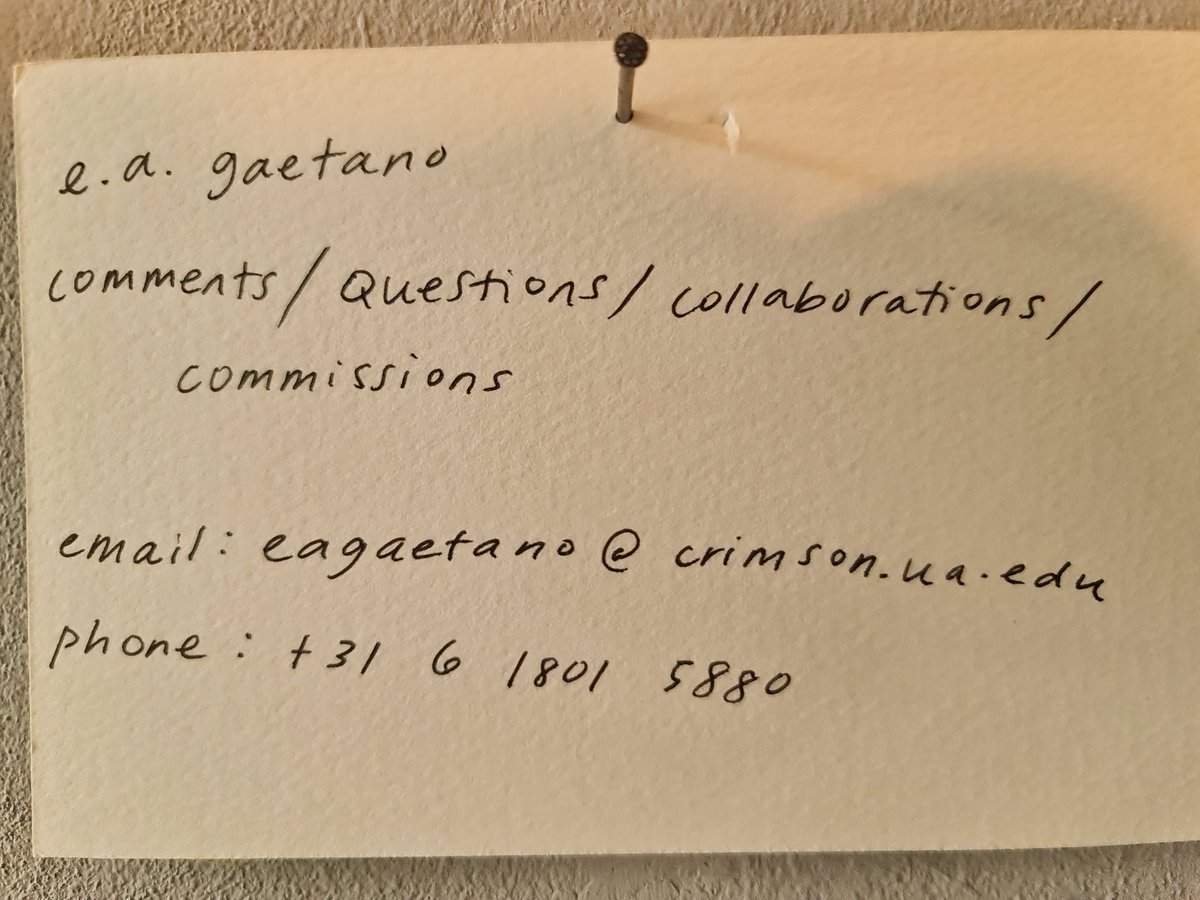 e.a. gaetano
comments/Questions/collaborations/
commissions
email: eagaetano@crimson.ua.edu
phone: +31 6 1801 5880